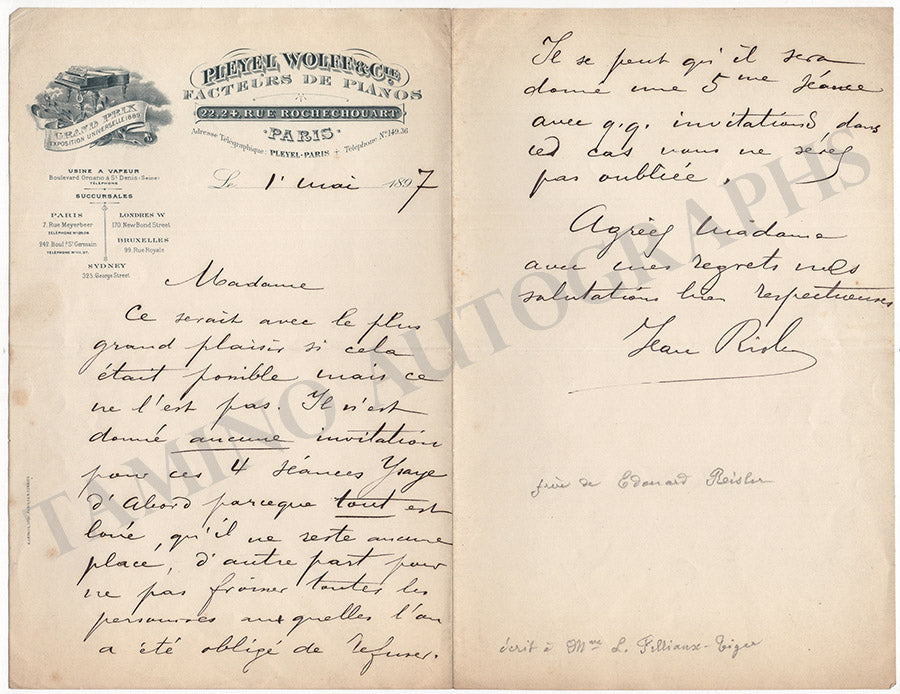 PLEYEL WOLFF & Cie
FACTEURS DE PIANOS
22.24, RUE ROCHECHOUART
PARIS
Adresse Télégraphique: PLEYEL-PARIS + Téléphone No 149.36
GRAND PRIX
EXPOSITION UNIVERSELLE 1889
USINE A VAPEUR
Boulevard Ornano à St Denis (Seine)
TÉLÉPHONE
SUCCURSALES
PARIS
7, Rue Meyerbeer
242 Boul. St Germain
LONDRES W
170, New Bond Street
BRUXELLES
99, Rue Royale
SYDNEY
325, George Street
Le 1r mai 1897
Madame
Ce serait avec le plus
grand plaisir si cela
était possible mais ce
ne l'est pas. Il n'est
donné aucune invitation
pour ces 4 séances Ysaye
d'abord parceque tout est
loué, qu'il ne reste aucune
place, d'autre part pour
ne pas froisser toutes les
personnes auxquelles l'on
a été obligé de refuser.
Il se peut qu'il sera
donné une 5me séance
avec q.q. invitations dans
ces cas vous ne serez
pas oubliée.
Agréez Madame
avec mes regrets mes
salutations bien respectueuses
Jean Risler
frère de Edouard Reisler
écrit à Mme L. Filliaux-Tiger
TAMINO AUTOGRAPHS